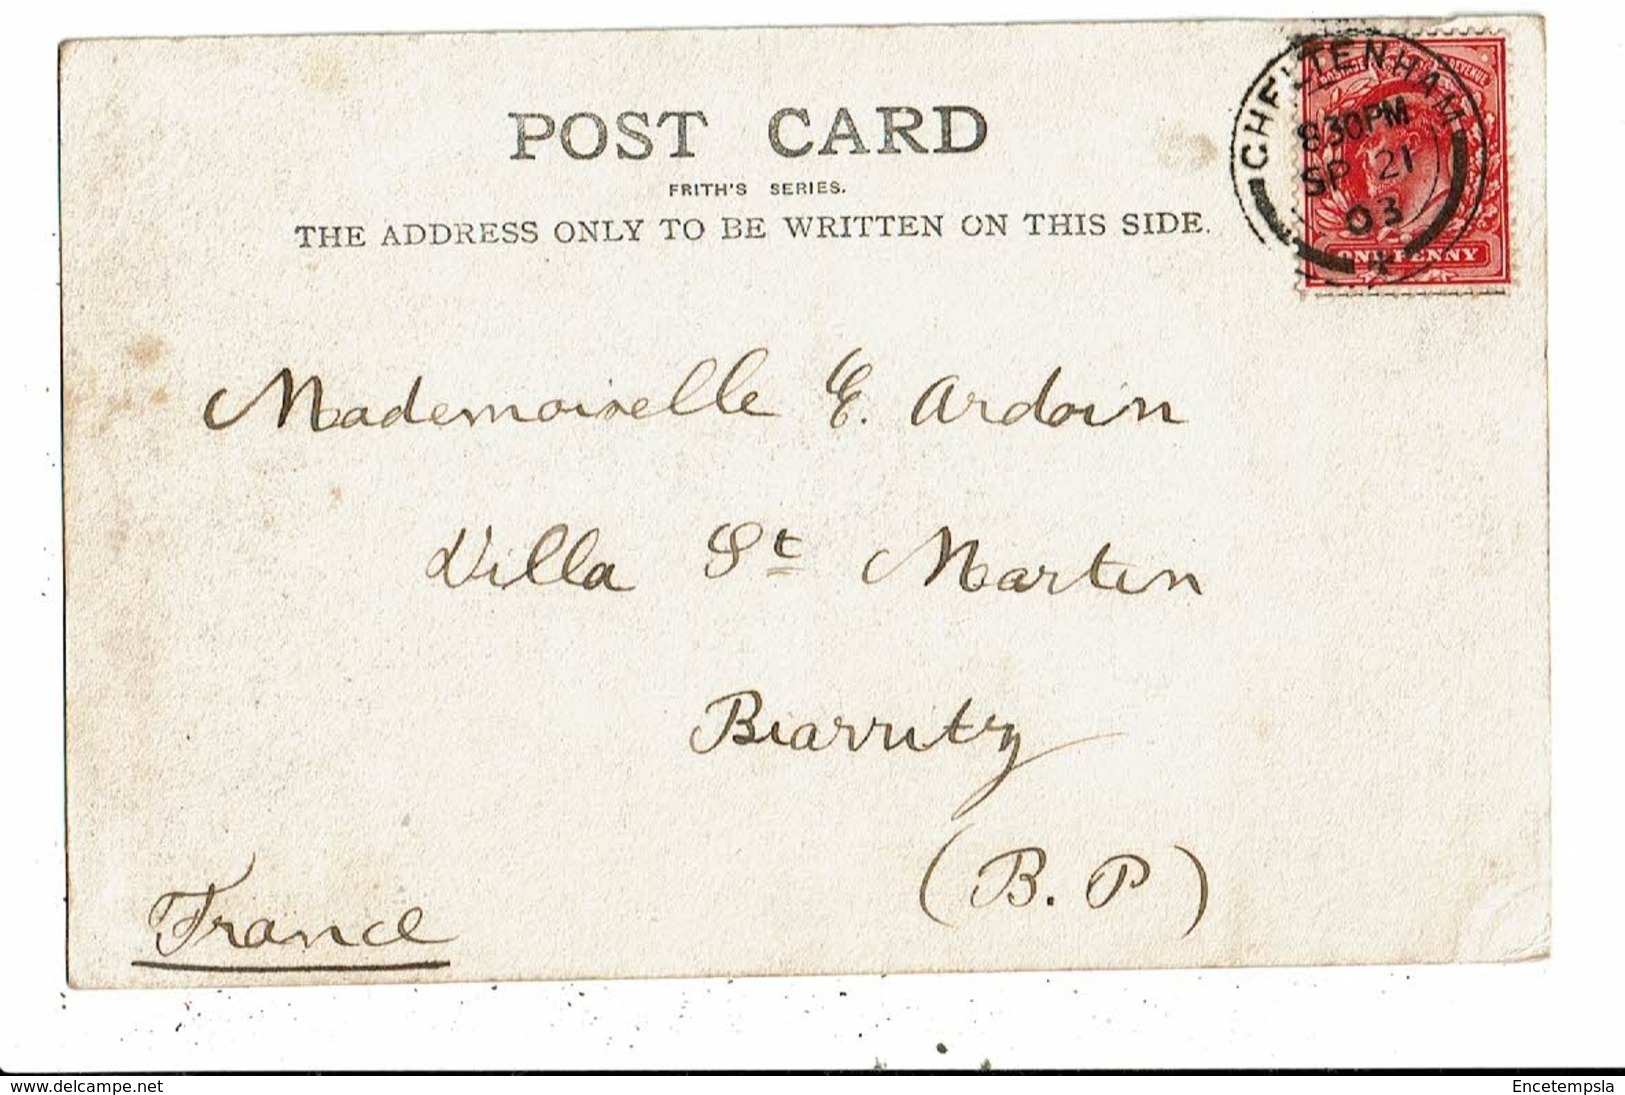 POST CARD
FRITH'S SERIES.
THE ADDRESS ONLY TO BE WRITTEN ON THIS SIDE.
CHELTENHAM
8 30 PM
SP 21
03
POSTAGE & REVENUE
ONE PENNY
Mademoiselle E. Ardoin
Villa St Martin
Biarritz
(B. P)
France
www.delcampe.net
Encetempsla